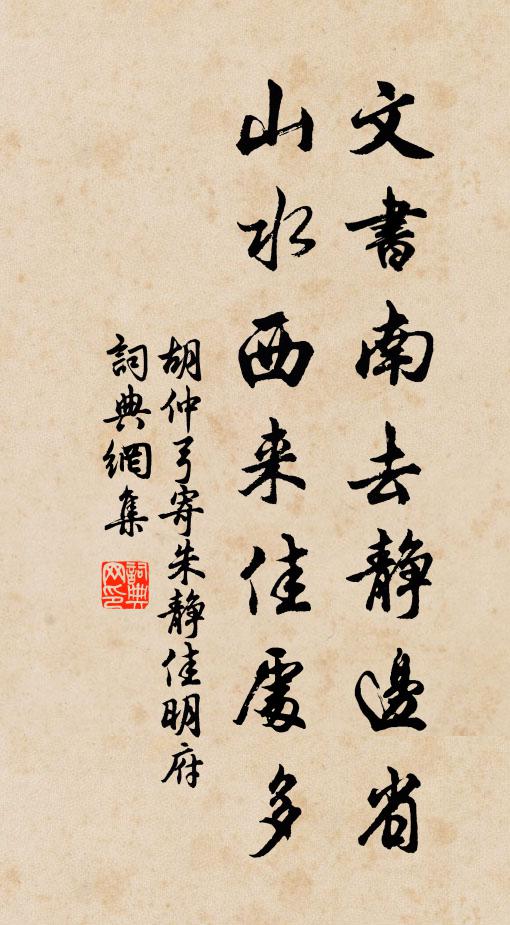 文書南去静邊省
山水西来佳處多
胡仲弓寄朱静佳明府
詞典網集
詞典网印